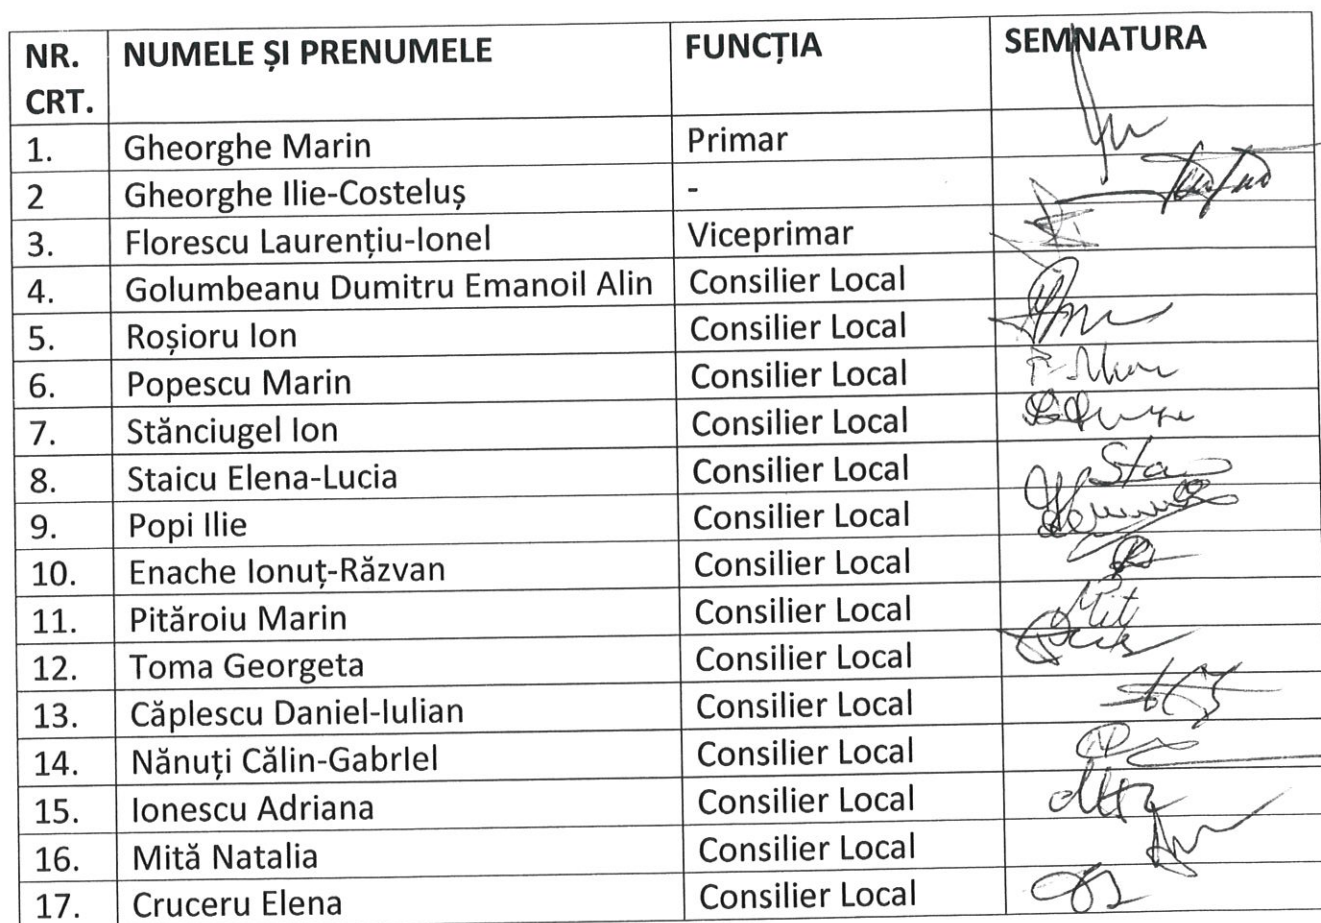 NR. CRT. NUMELE ȘI PRENUMELE FUNCȚIA SEMNATURA
1. Gheorghe Marin Primar
2 Gheorghe Ilie-Costeluș -
3. Florescu Laurențiu-Ionel Viceprimar
4. Golumbeanu Dumitru Emanoil Alin Consilier Local
5. Roșioru Ion Consilier Local
6. Popescu Marin Consilier Local
7. Stănciugel Ion Consilier Local
8. Staicu Elena-Lucia Consilier Local
9. Popi Ilie Consilier Local
10. Enache Ionuț-Răzvan Consilier Local
11. Pităroiu Marin Consilier Local
12. Toma Georgeta Consilier Local
13. Căplescu Daniel-Iulian Consilier Local
14. Nănuți Călin-Gabrlel Consilier Local
15. Ionescu Adriana Consilier Local
16. Mită Natalia Consilier Local
17. Cruceru Elena Consilier Local